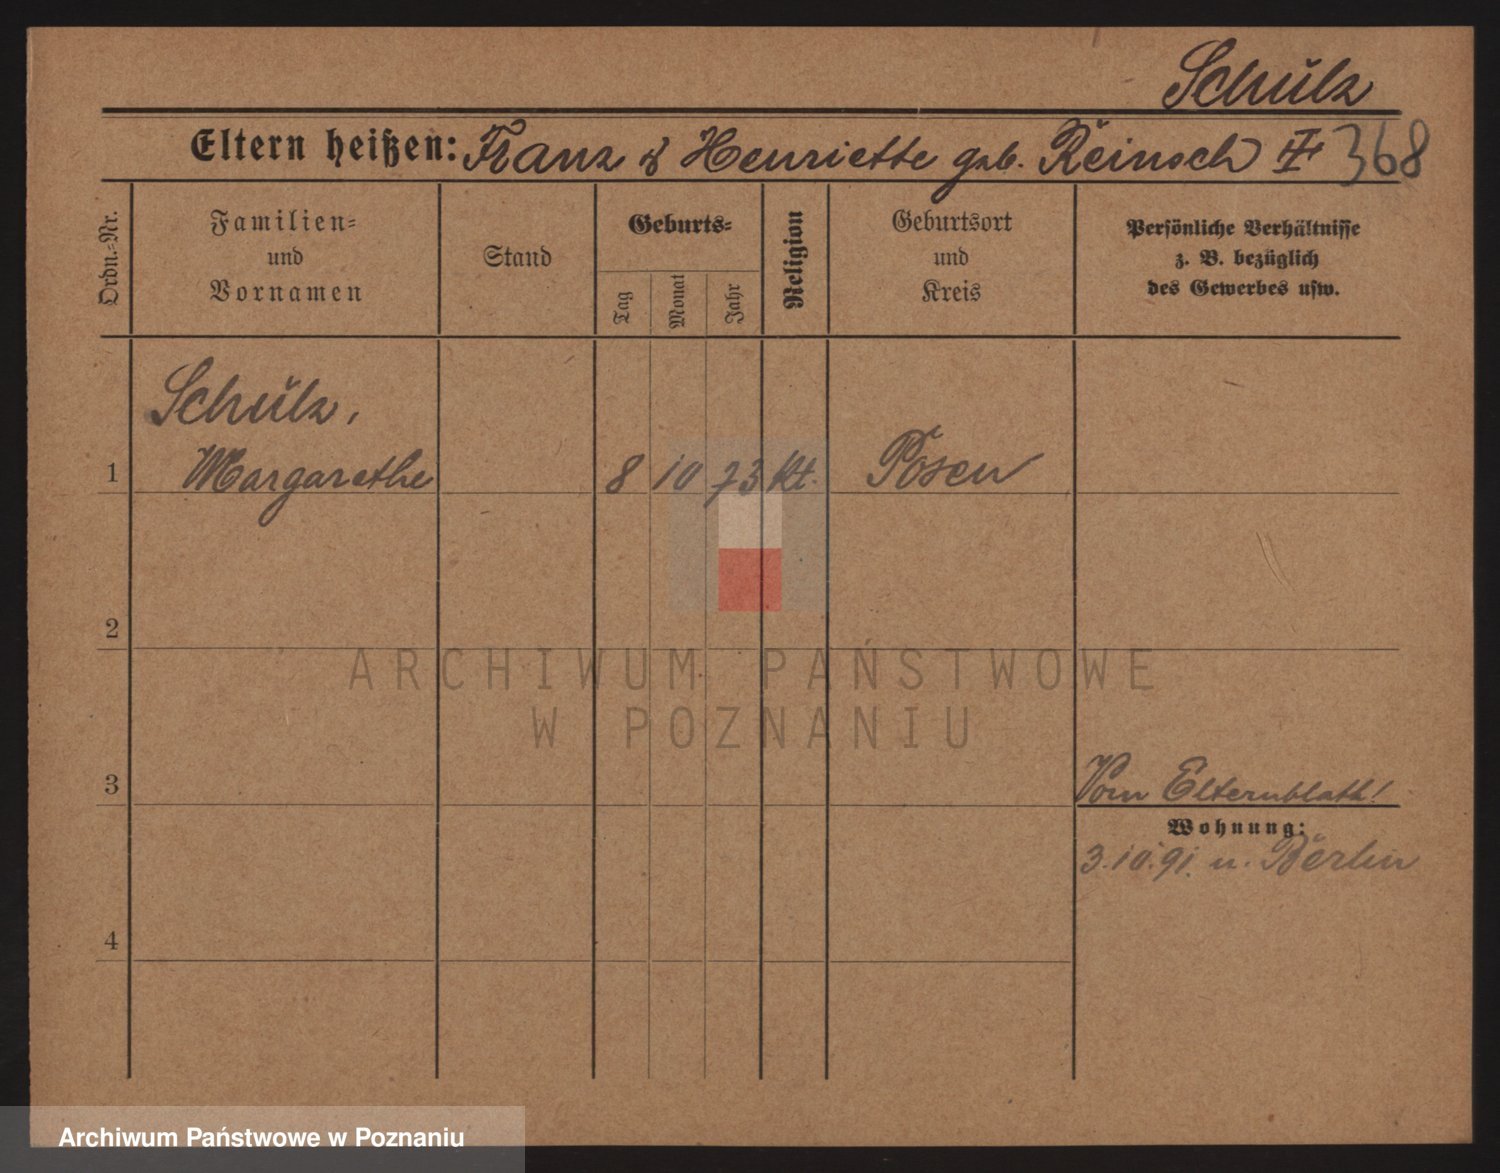 Schulz
Eltern heißen: Franz & Henriette geb. Reinsch 368
Ordn.=Nr.
Familien=
und
Vornamen
Stand
Geburts=
Tag
Monat
Jahr
Religion
Geburtsort
und
Kreis
Persönliche Verhältnisse
z. B. bezüglich
des Gewerbes usw.
Schulz,
1 Margarethe 8 10 73 kt. Posen
2
ARCHIWUM PAŃSTWOWE
W POZNANIU
3 Vom Elternblatt!
Wohnung:
3.10.91. n. Berlin
4
Archiwum Państwowe w Poznaniu